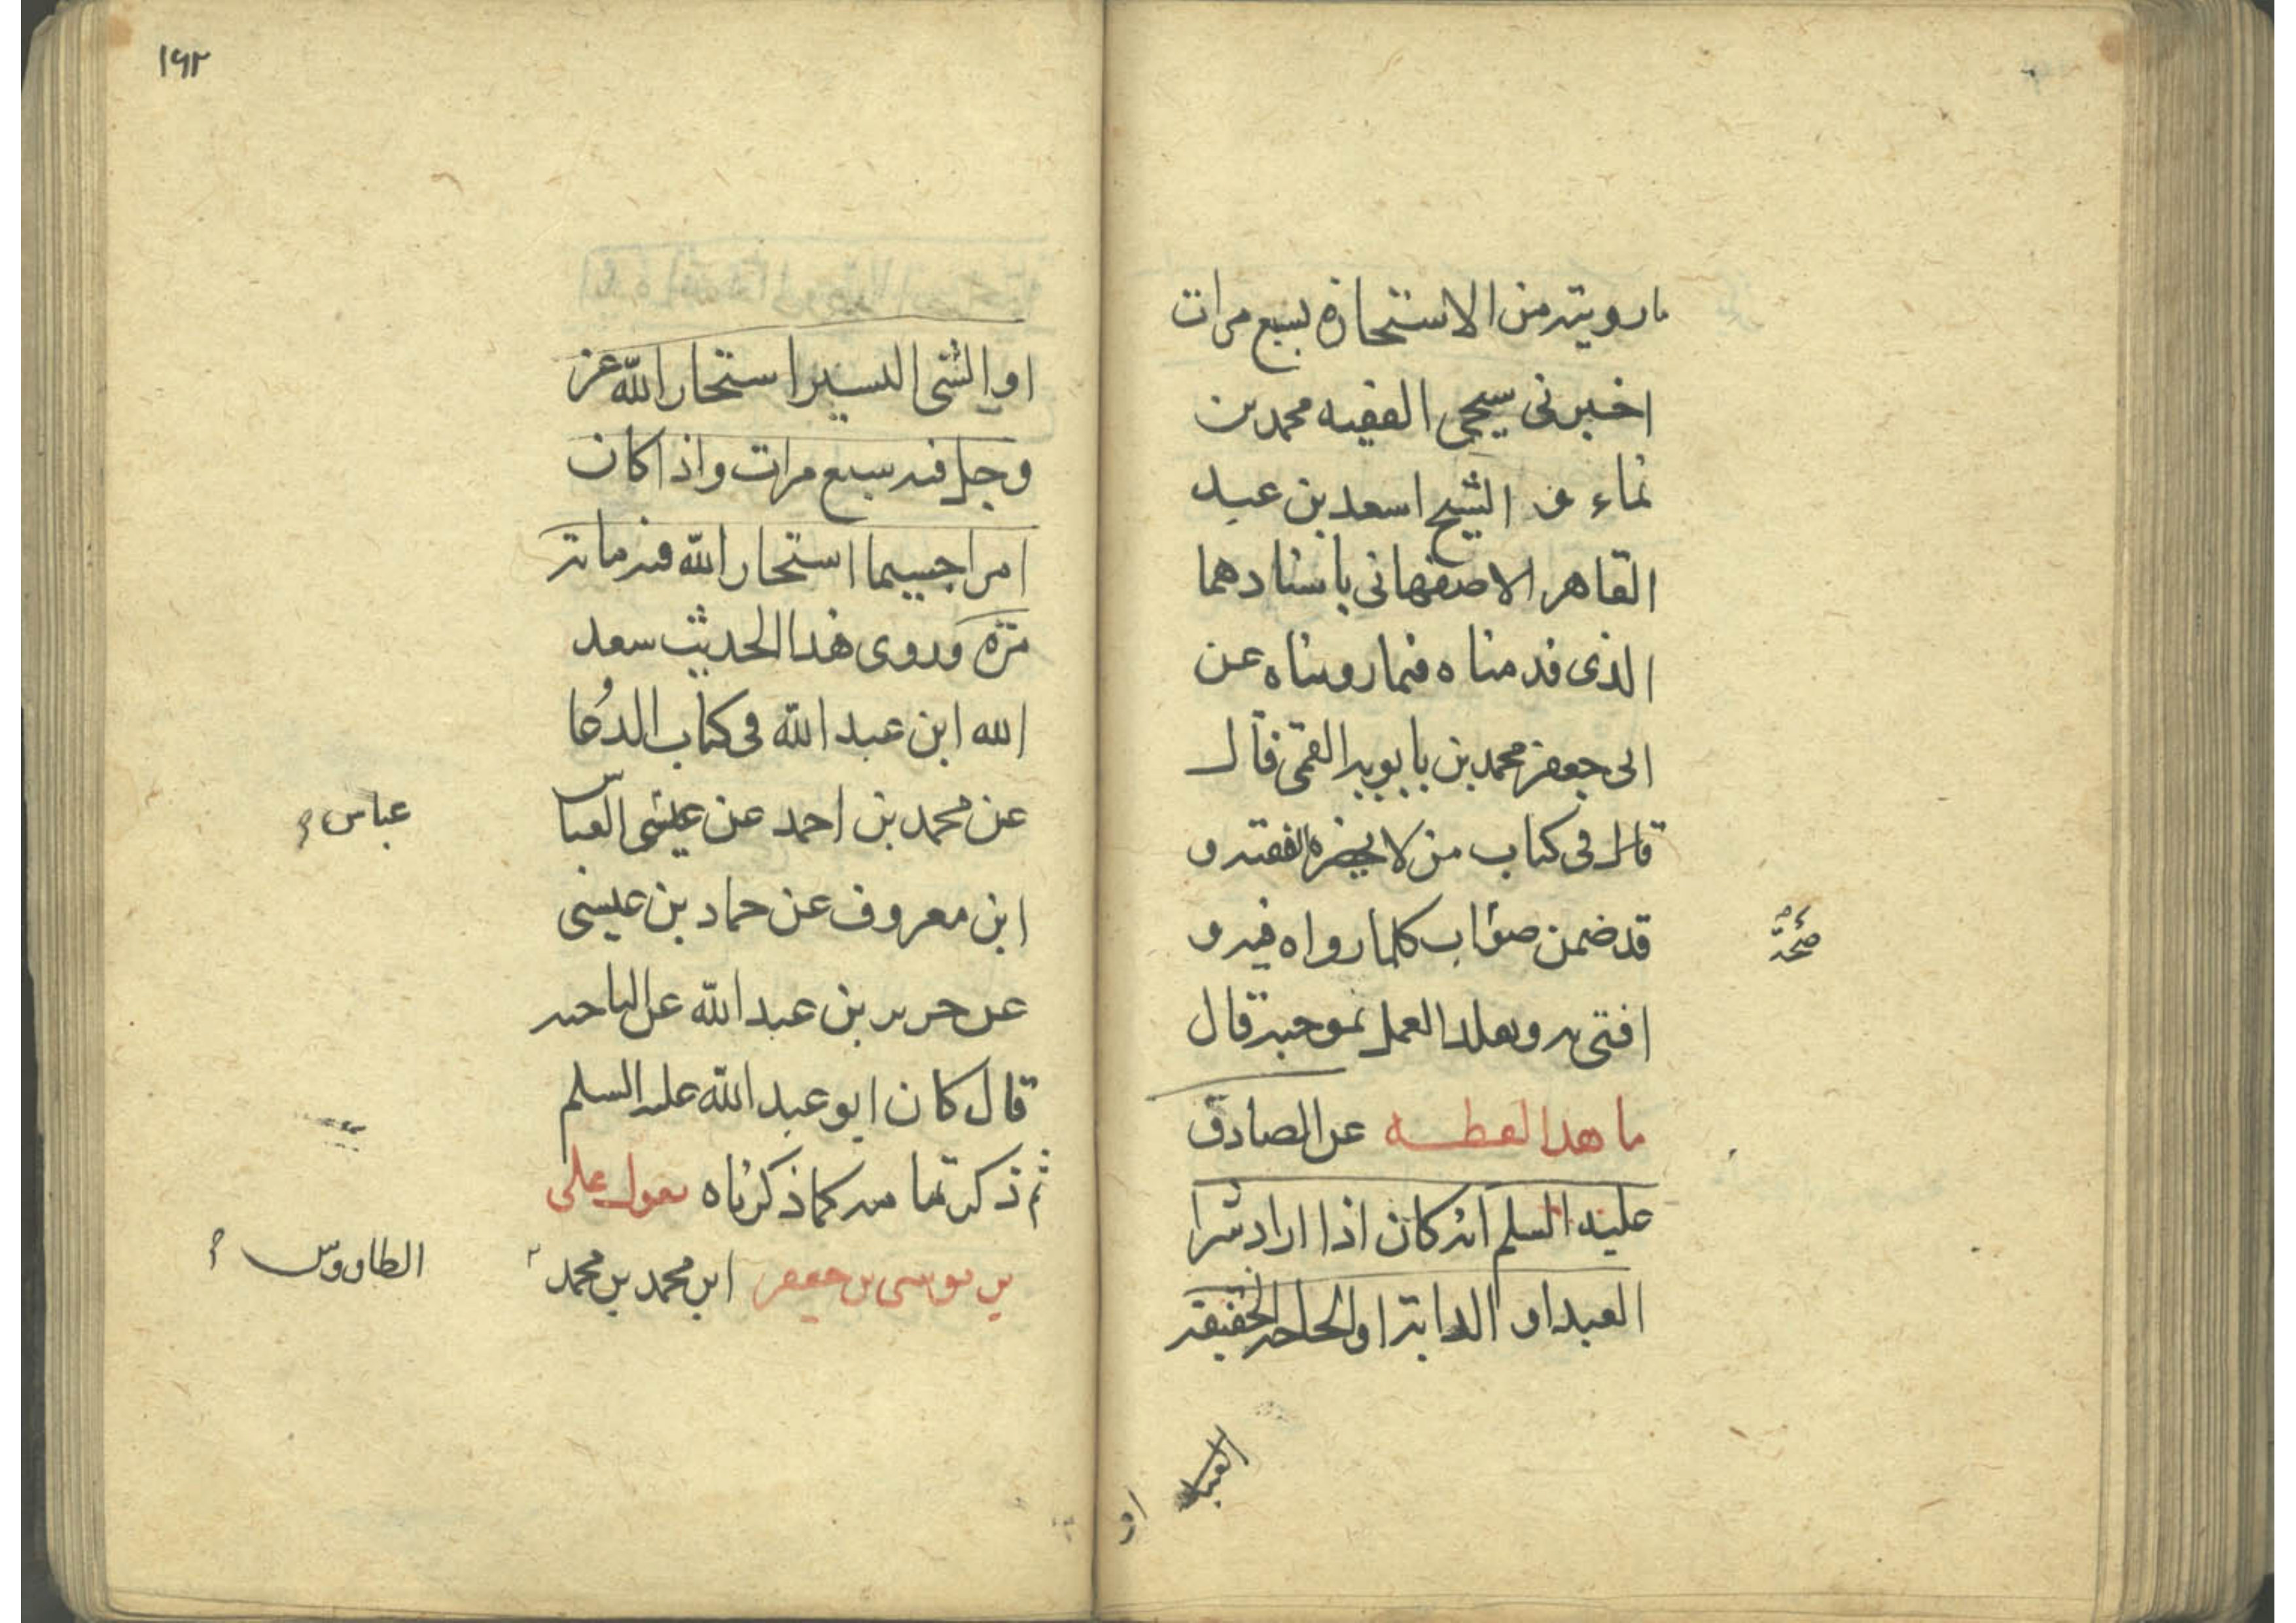 ما رويته من الاستخارة بسبع مرات
اخبرنى شيخى الفقيه محمد بن
نماء و الشيخ اسعد بن عبد
القاهر الاصفهانى باسنادهما
الذى قدمناه فيما رويناه عن
ابى جعفر محمد بن بابويه القمى قال
قال فى كتاب من لا يحضره الفقيه و
قد ضمن صواب كلما رواه فيه و
صحة
افتى به وتقلد العمل بموجبه قال
ما هذا لفظه عن الصادق
عليه السلم انه كان اذا اراد شرا
العبد او الدابة او الحاجة الخفيفة
او
١٩٢
او الشى اليسير استخار الله عز
وجل فيه سبع مرات واذا كان
امرا جسيما استخار الله فيه ماية
مرة وروى هذا الحديث سعد
الله ابن عبد الله فى كتاب الدعا
عن محمد بن احمد عن عيسى العبا
عباس
ابن معروف عن حماد بن عيسى
عن حرير بن عبد الله عن الناحيه
قال كان ابو عبد الله عليه السلم
ثم ذكر تمامه كما ذكرناه يقول على
بن موسى بن جعفر ابن محمد بن محمد
الطاووس